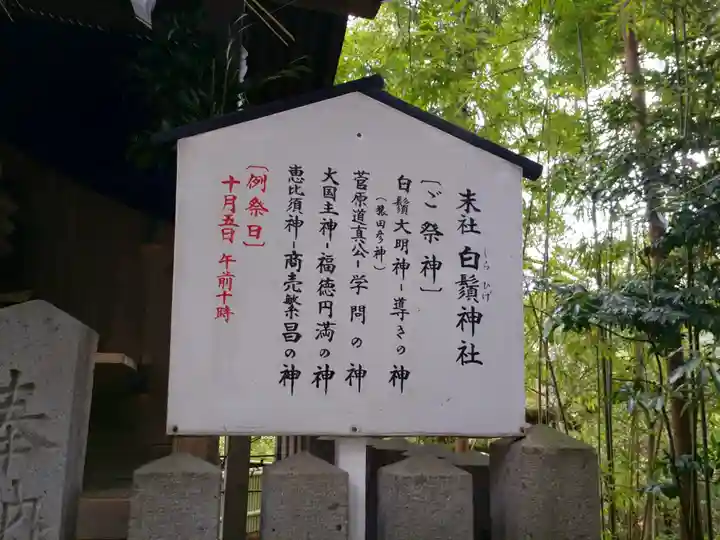 末社 白鬚神社
しらひげ
〔ご祭神〕
白鬚大明神−導きの神
(猿田彦神)
菅原道真公−学問の神
大国主神−福徳円満の神
恵比須神−商売繁昌の神
〔例祭日〕
十月五日 午前十時
奉納